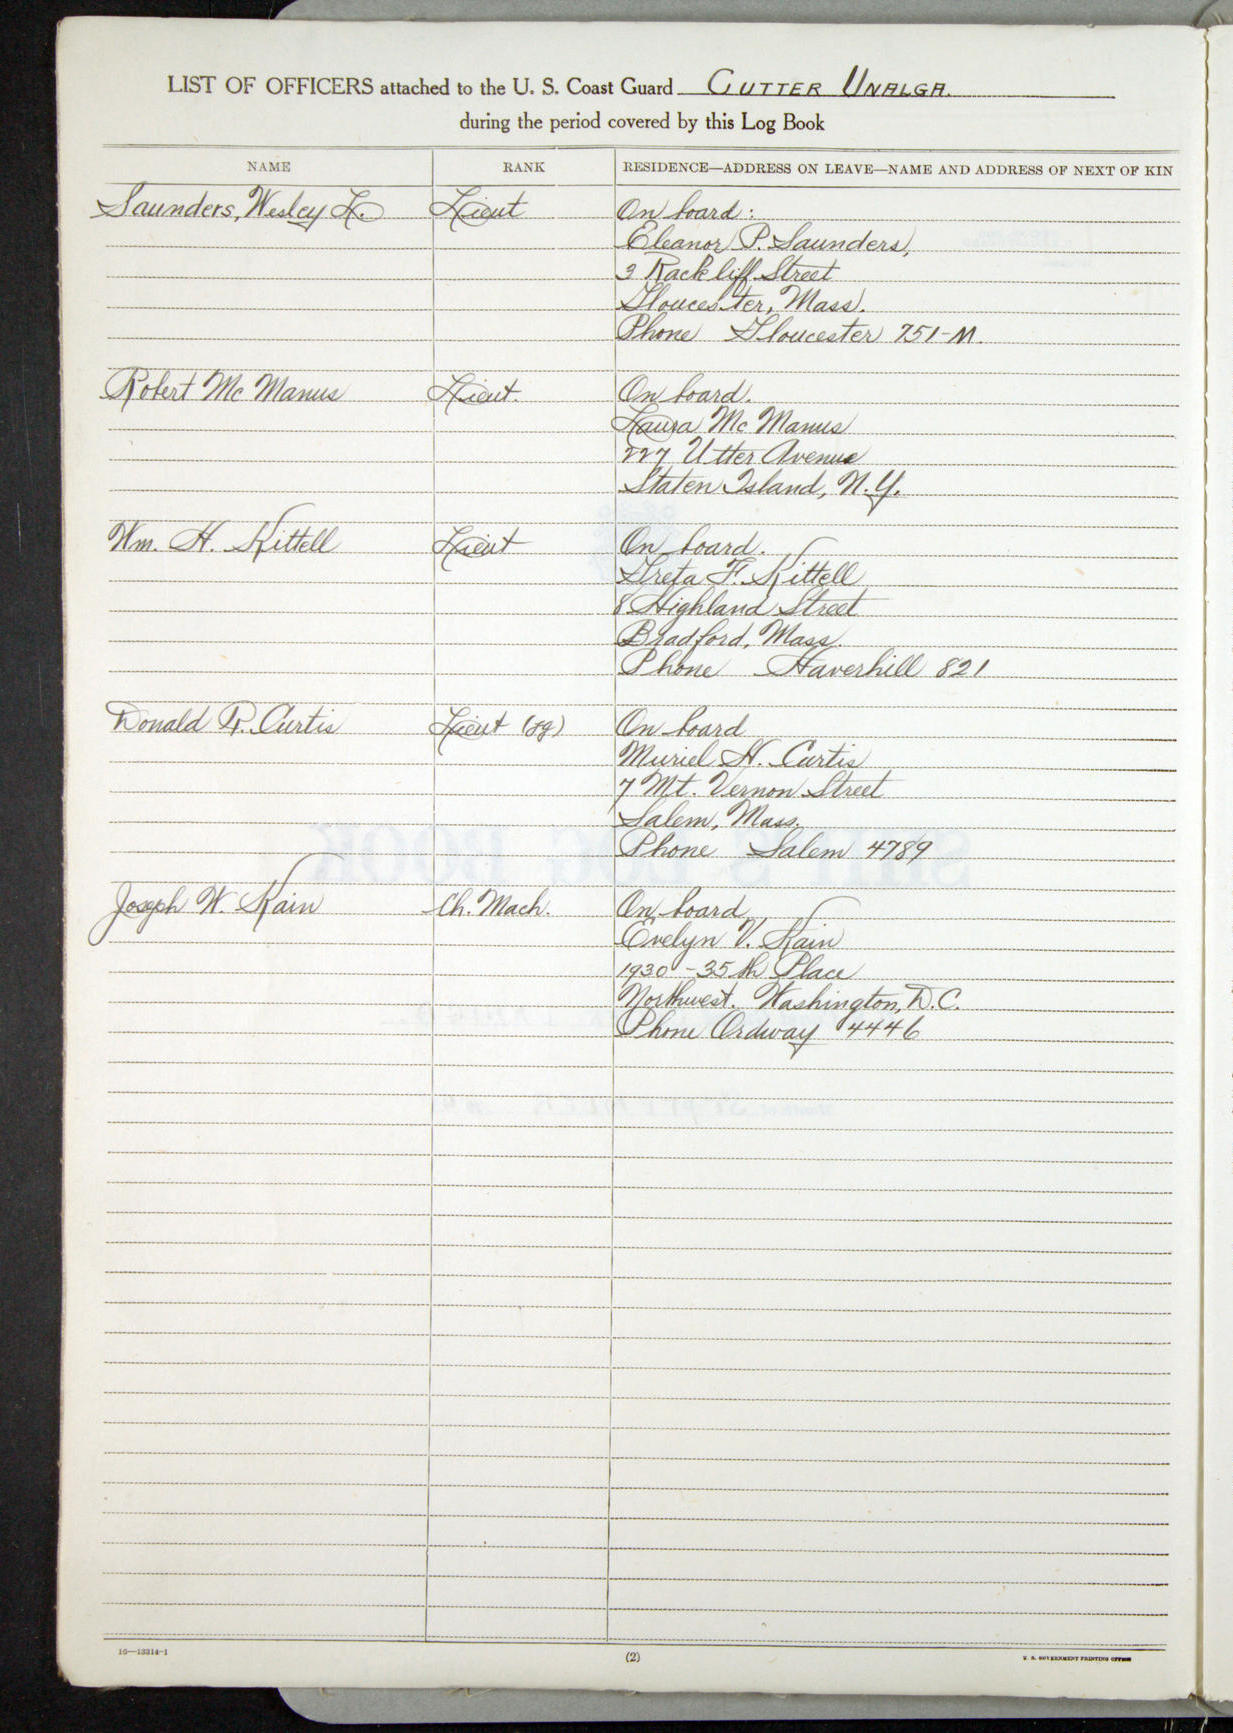 LIST OF OFFICERS attached to the U. S. Coast Guard CUTTER UNALGA.
during the period covered by this Log Book
NAME RANK RESIDENCE—ADDRESS ON LEAVE—NAME AND ADDRESS OF NEXT OF KIN
Saunders, Wesley L. Lieut On board:
Eleanor P. Saunders,
3 Rackliff Street
Gloucester, Mass.
Phone Gloucester 751-M.
Robert Mc Manus Lieut. On board.
Laura Mc Manus
227 Utter Avenue
Staten Island, N.Y.
Wm. H. Kittell Lieut On board.
Greta F. Kittell
8 Highland Street
Bradford, Mass.
Phone Haverhill 821
Donald R. Curtis Lieut (jg) On board
Muriel H. Curtis
7 Mt. Vernon Street
Salem, Mass.
Phone Salem 4789
Joseph W. Kain Ch. Mach. On board
Evelyn V. Kain
1930 - 35th Place
Northwest. Washington, D.C.
Phone Ordway 4446
16—13314-1 (2) U. S. GOVERNMENT PRINTING OFFICE